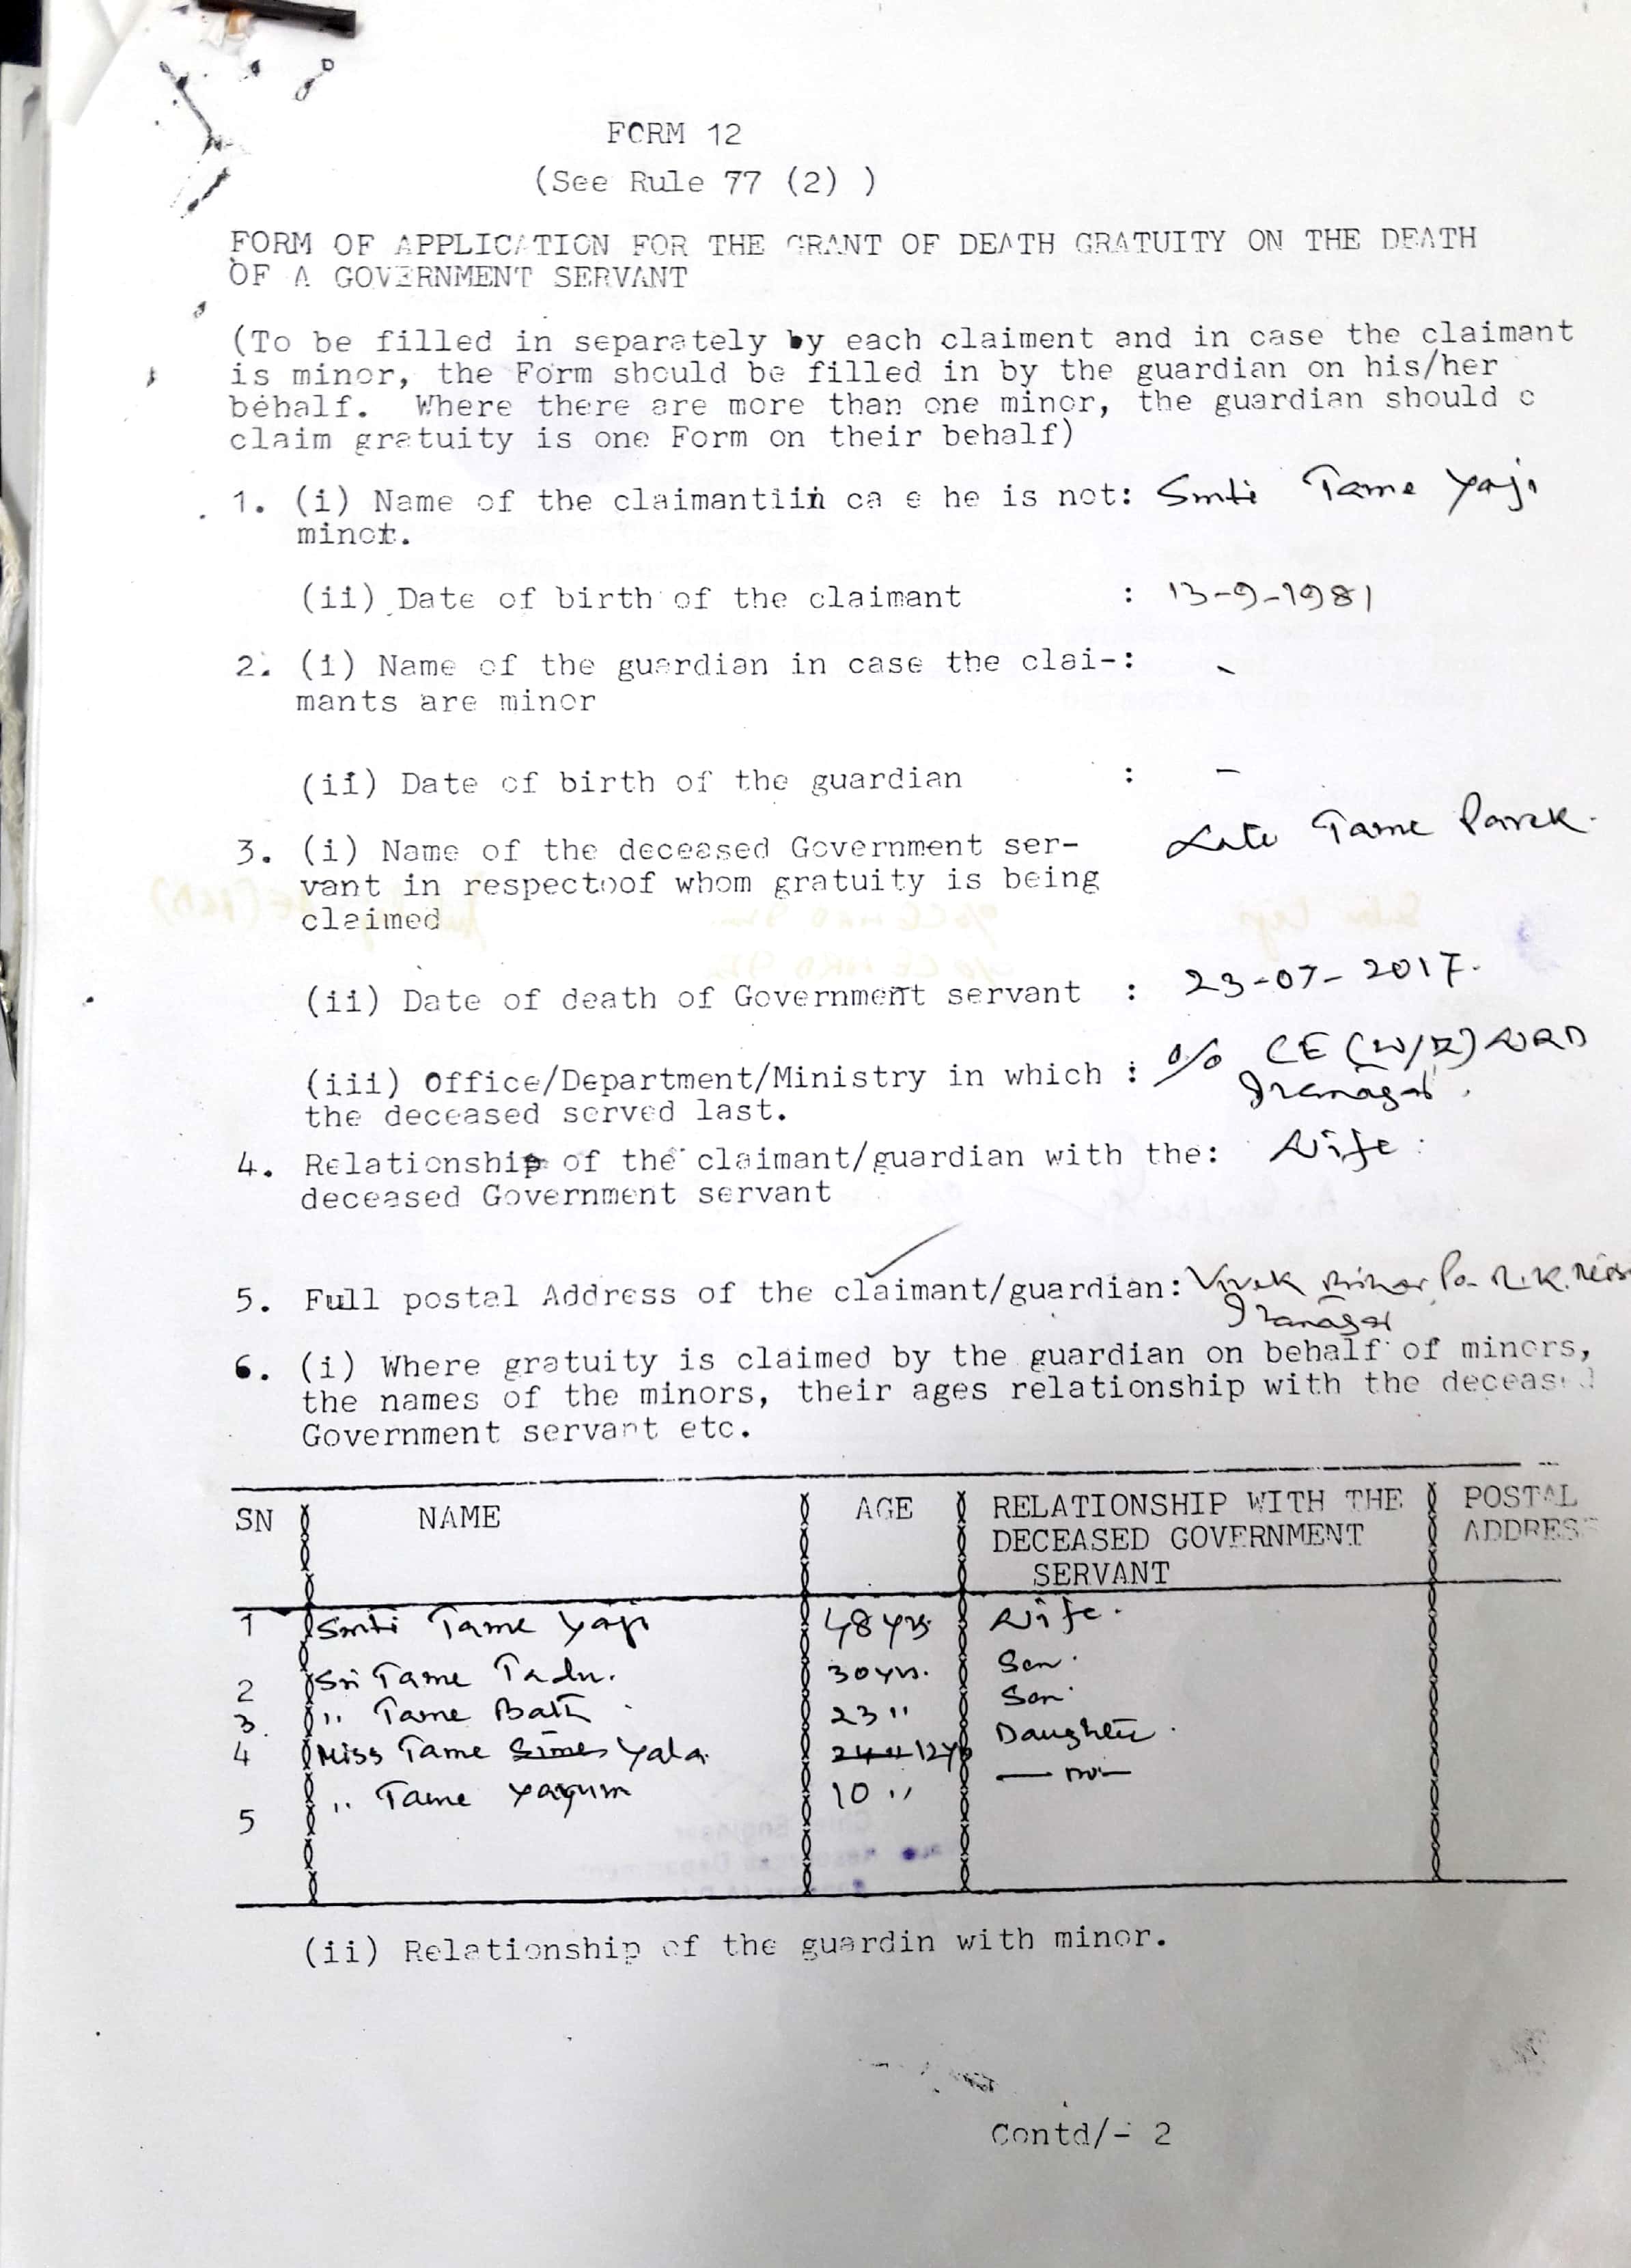 FORM 12
(See Rule 77 (2) )
FORM OF APPLICATION FOR THE GRANT OF DEATH GRATUITY ON THE DEATH
OF A GOVERNMENT SERVANT
(To be filled in separately by each claiment and in case the claimant
is minor, the Form should be filled in by the guardian on his/her
behalf. Where there are more than one minor, the guardian should c
claim gratuity is one Form on their behalf)
1. (i) Name of the claimantiin ca e he is not: Smti Tame Yaji
minor.
(ii) Date of birth of the claimant : 13-9-1981
2. (i) Name of the guardian in case the clai-: -
mants are minor
(ii) Date of birth of the guardian : -
3. (i) Name of the deceased Government ser- Late Tame Parek.
vant in respectoof whom gratuity is being
claimed
(ii) Date of death of Government servant : 23-07-2017.
(iii) Office/Department/Ministry in which : O/o CE (W/Z) WRD
the deceased served last. Itanagar.
4. Relationship of the claimant/guardian with the: Wife.
deceased Government servant
5. Full postal Address of the claimant/guardian: Vivek Bihar Po- R.K.
Itanagar
6. (i) Where gratuity is claimed by the guardian on behalf of minors,
the names of the minors, their ages relationship with the deceased
Government servant etc.
SN NAME AGE RELATIONSHIP WITH THE POSTAL
DECEASED GOVERNMENT ADDRESS
SERVANT
1 Smti Tame Yaji 48 yrs. Wife.
2 Sri Tame Tadu. 30 yrs. Son.
3. " Tame 23 " Son.
4 Miss Tame Yala. 24 " 12 yrs Daughter.
5 " Tame Yayum 10 " — do —
(ii) Relationship of the guardin with minor.
Contd/- 2